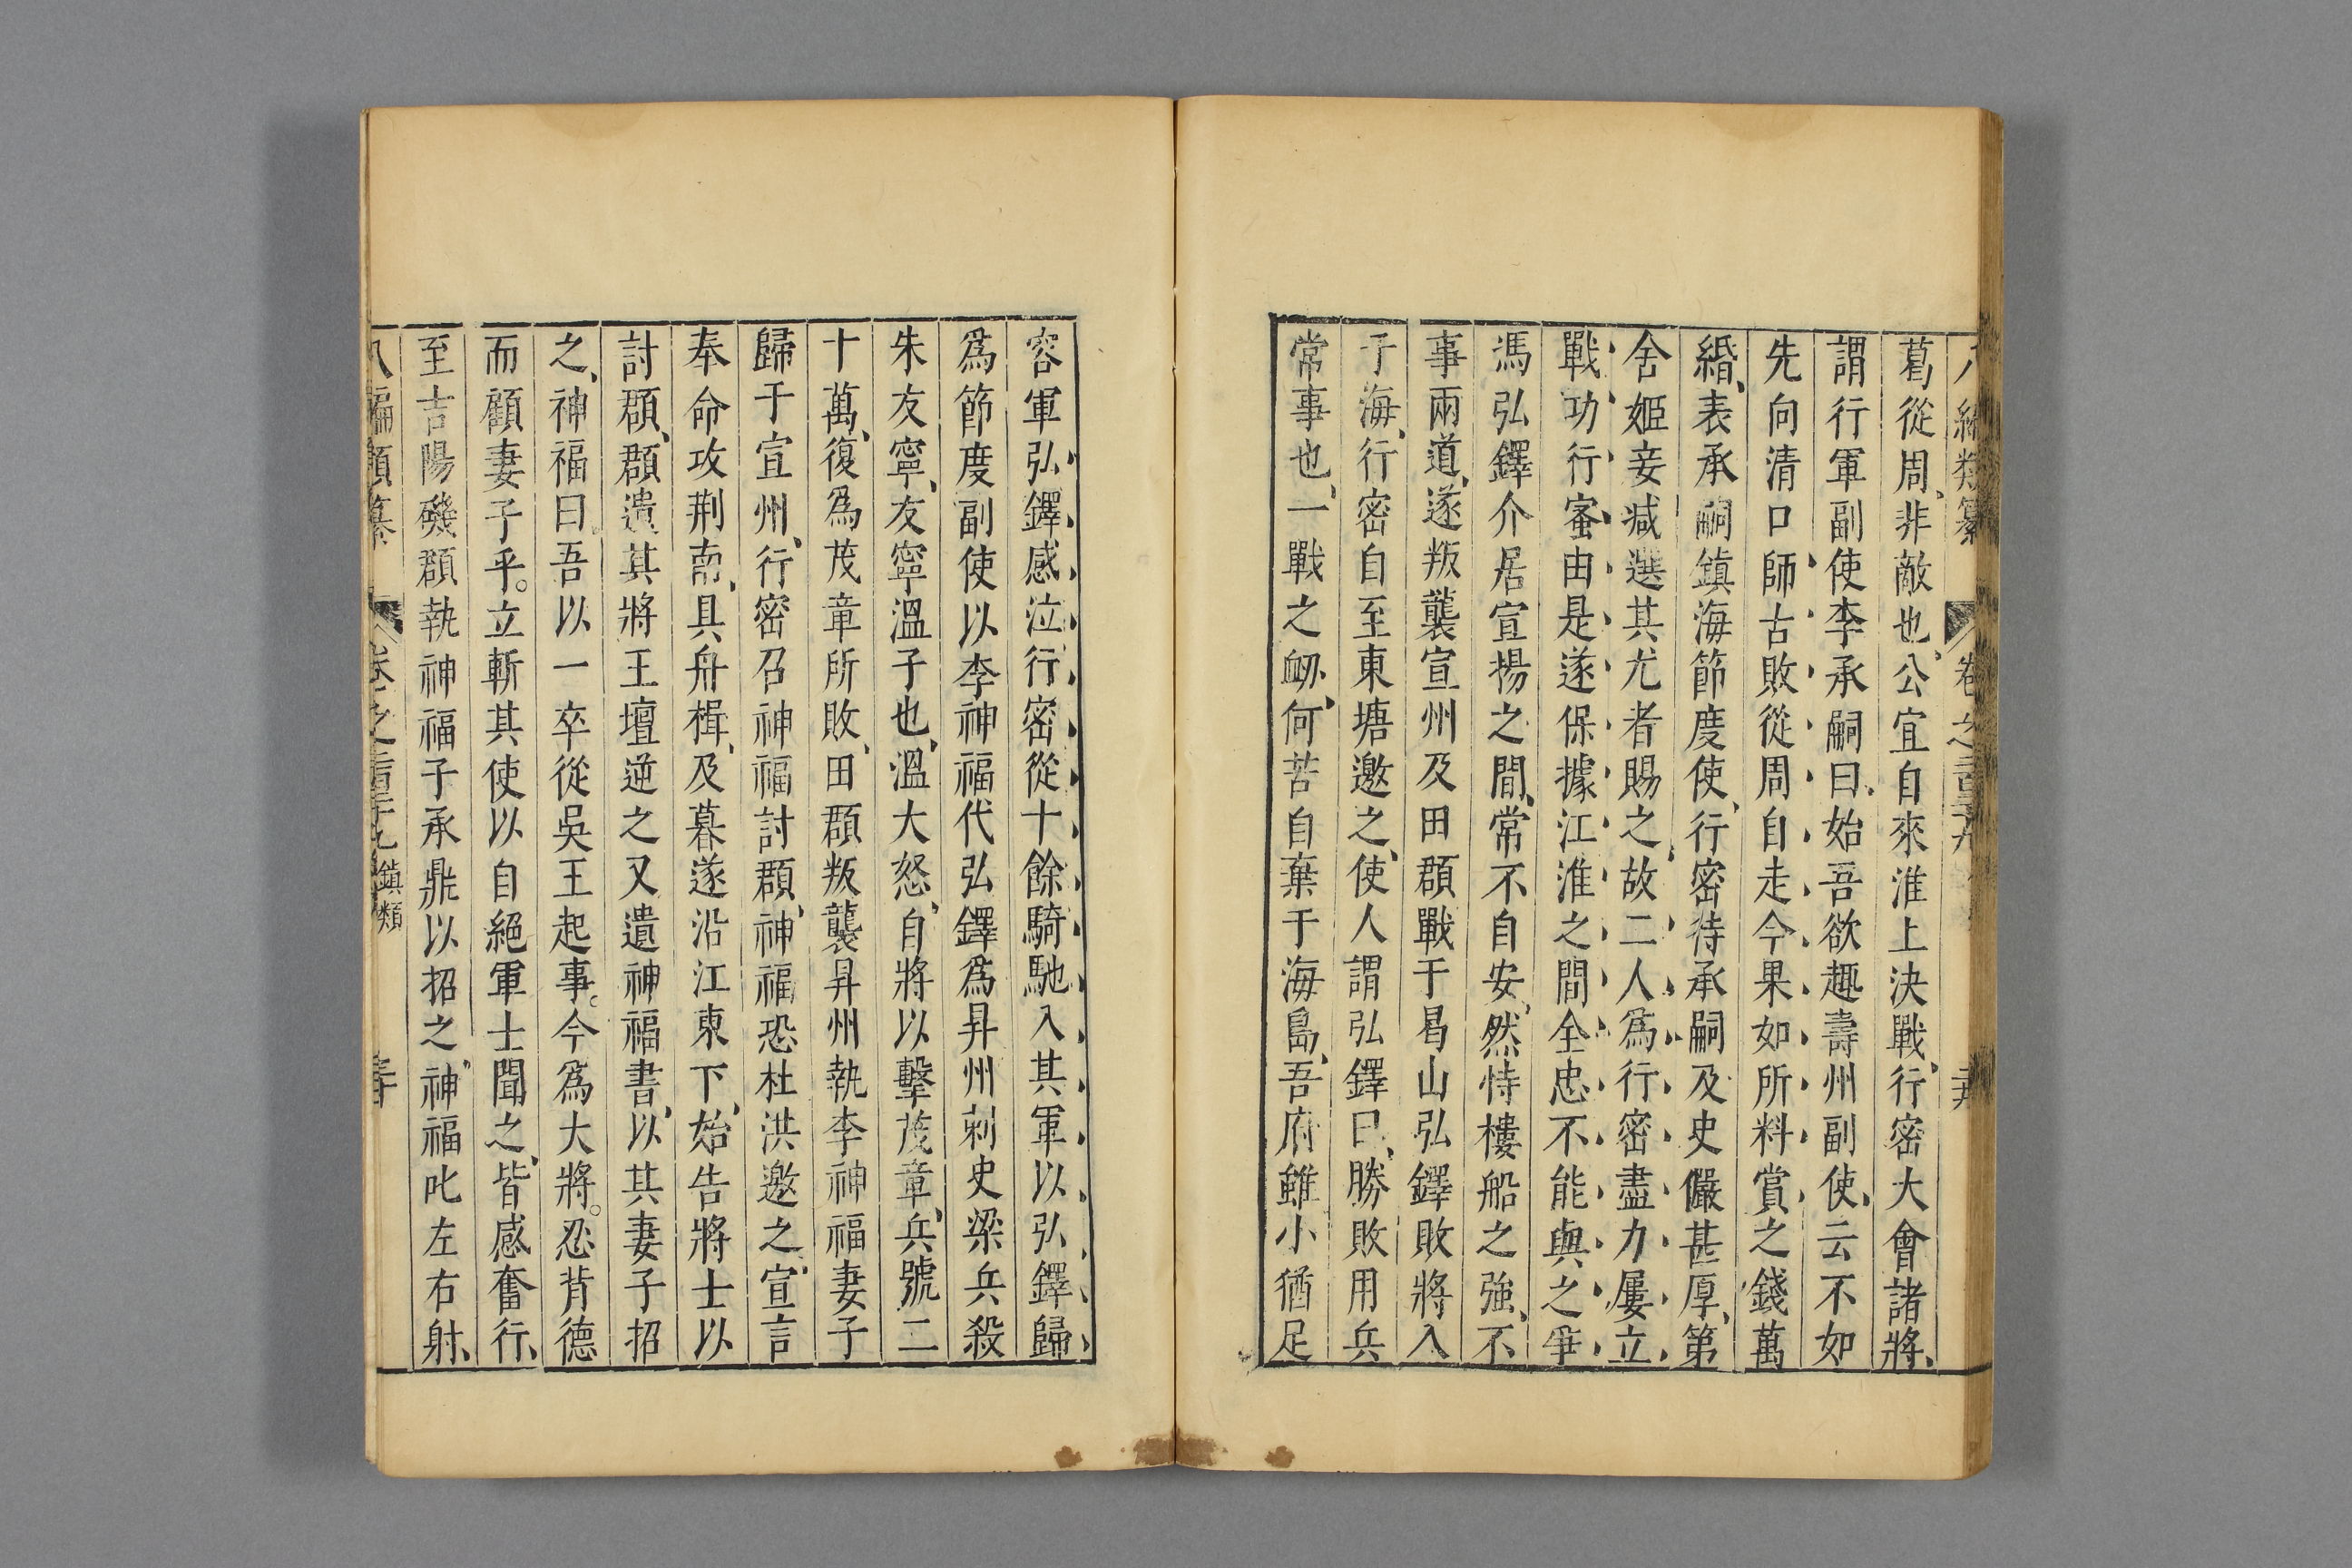 葛從周、非敵也、公宜自來淮上決戰、行密大會諸將、
謂行軍副使李承嗣曰、始吾欲趣壽州副使、云不如
先向清口師古敗從周自走今果如所料賞之錢萬
緡、表承嗣鎮海節度使、行密待承嗣及史儼甚厚、第
舍姬妾減選其尤者賜之、故二人為行密盡力屢立
戰功行密由是遂保據江淮之間全忠不能與之爭
馮弘鐸介居宣揚之間、常不自安、然恃樓船之強、不
事兩道、遂叛襲宣州及田頵戰于曷山弘鐸敗將入
于海、行密自至東塘邀之、使人謂弘鐸曰、勝敗用兵
常事也、一戰之衂、何苦自棄于海島、吾府雖小猶足
容軍弘鐸感泣行密從十餘騎馳入其軍以弘鐸歸
為節度副使以李神福代弘鐸為昇州刺史梁兵殺
朱友寧、友寧溫子也、溫大怒、自將以擊茂章、兵號二
十萬、復為茂章所敗、田頵叛襲昇州執李神福妻子
歸于宣州、行密召神福討頵、神福恐杜洪邀之、宣言
奉命攻荆南、具舟楫、及暮遂沿江東下、始告將士以
討頵、頵遣其將王壇逆之又遺神福書、以其妻子招
之、神福曰吾以一卒從吳王起事。今為大將。忍背德
而顧妻子乎。立斬其使以自絕軍士聞之、皆感奮行、
至吉陽磯頵執神福子承鼎以招之、神福叱左右射、
八編類纂 鎮類